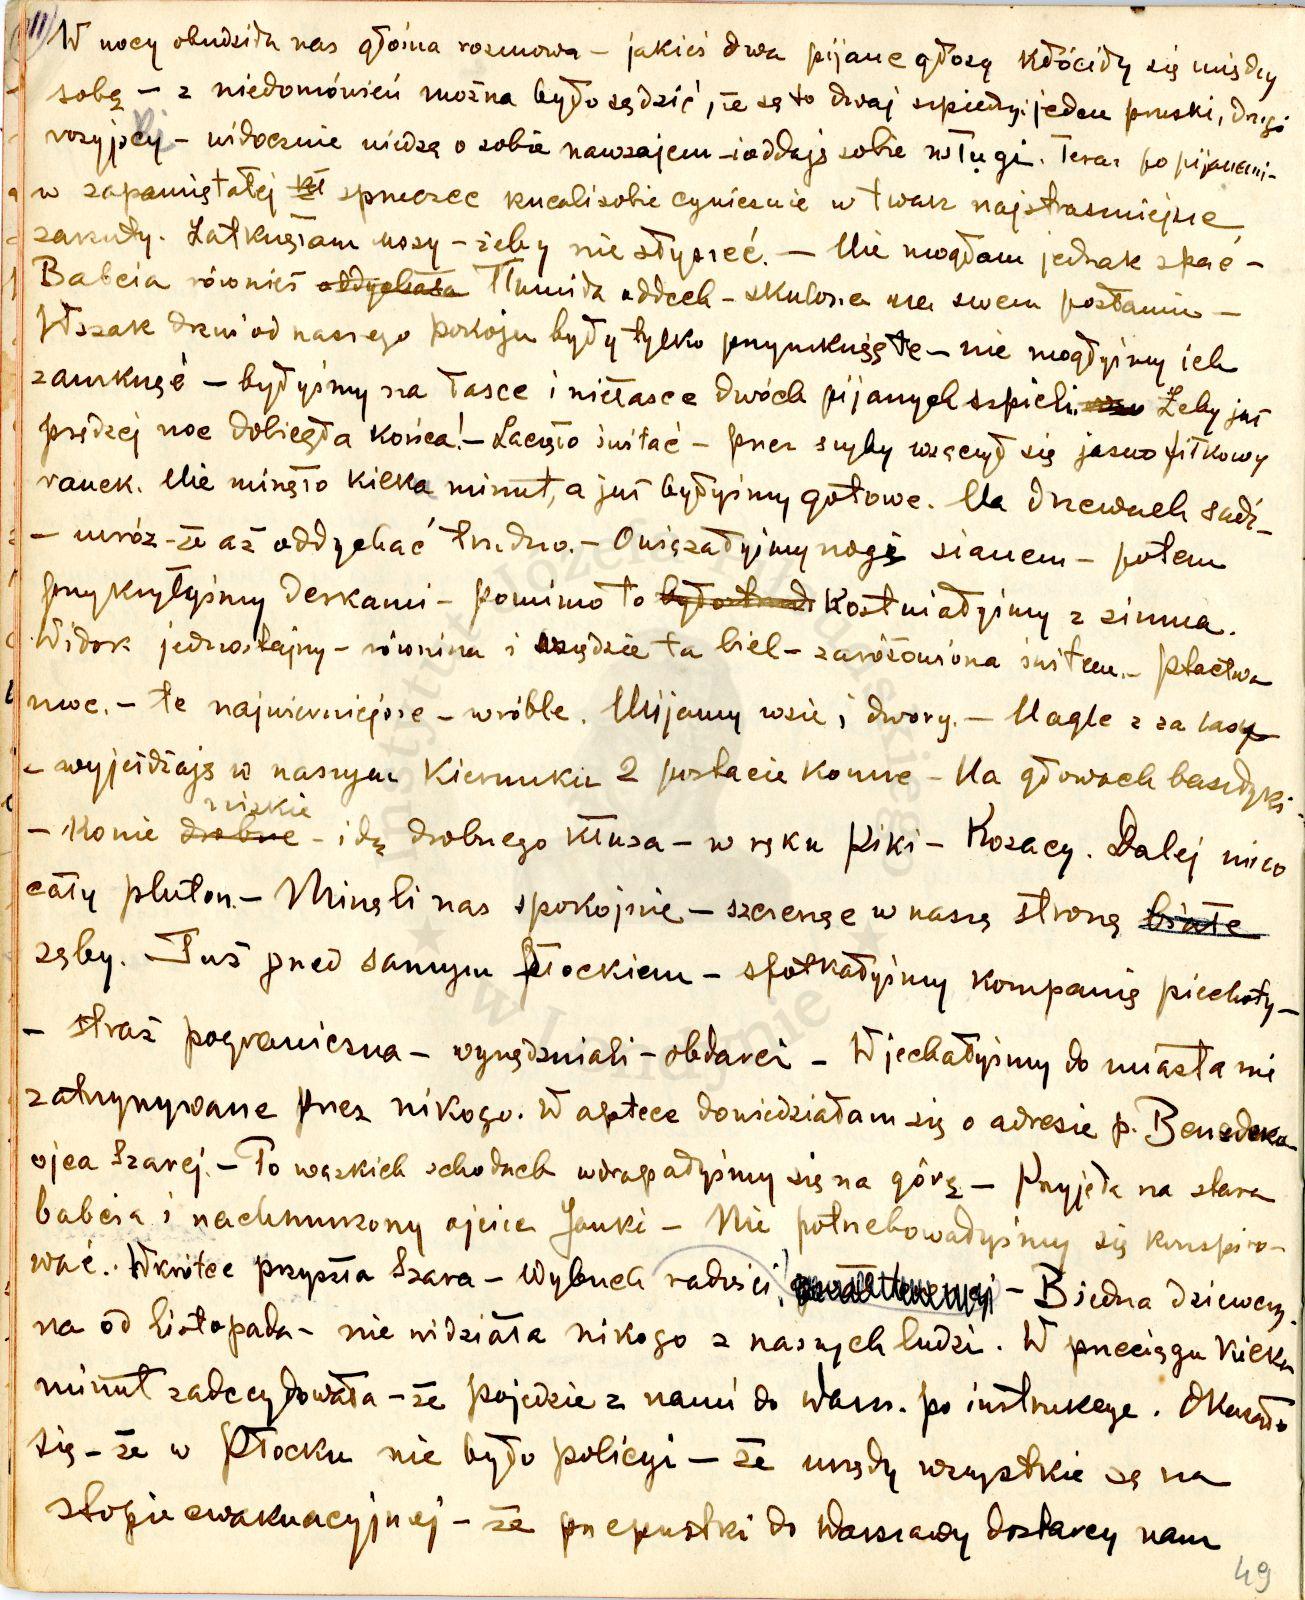 11)
W nocy obudziła nas głośna rozmowa – jakieś dwa pijane głosy kłóciły się między
sobą – z niedomówień można było sądzić, że są to dwaj szpiedzy: jeden pruski, drugi
rosyjscy – widocznie wiedzą o sobie nawzajem – i oddają sobie usługi. Teraz po pijanemi –
w zapamiętałej sprzeczce rzucali sobie cynicznie w twarz najstraszniejsze
zarzuty. Zatknęłam uszy – żeby nie słyszeć. – Nie mogłam jednak spać –
Babcia również oddychała tłumiła oddech – skulona na swem posłaniu –
Wszak drzwi od naszego pokoju były tylko przymknięte – nie mogłyśmy ich
zamknąć – byłyśmy na łasce i niełasce dwóch pijanych szpicli. Żeby już
prędzej noc dobiegła końca! – Zaczęło świtać – przez szyby wsączył się jasno fiłkowy
ranek. Nie minęło kilka minut, a już byłyśmy gotowe. Na drzewach sadź –
– mróz – że aż oddychać trudno. – Owiązałyśmy nogi sianem – potem
przykryłyśmy derkami – pomimo to kostniałyśmy z zimna.
Widok jednostajny – równina i wszędzie ta biel – zaróżowiona świtem. – ptactwa
niwe. – te najwierniejsze – wróble. Mijamy wsie i dwory. – Nagle z za lasu
– wyjeżdżają w naszym kierunku 2 postacie konne – Na głowach baszłyki –
nizkie
– Konie drobne – idą drobnego kłusa – w ręku piki – Kozacy. Dalej nieco
cały pluton. – Minęli nas spokojnie – szczerząc w naszą stronę białe
zęby. Tuż przed samym Płockiem – spotkałyśmy kompanię piechoty –
– straż pograniczna – wynędzniali – obdarci – Wjechałyśmy do miasta nie
zatrzymywane przez nikogo. W aptece dowiedziałam się o adresie p. Benedeka
ojca Szarej. – Po wąskich schodach wdrapałyśmy się na górę – Przyjęła na stara
babcia i nachmurzony ojciec Janki – Nie potrzebowałyśmy się konspiro–
wać. Wkrótce przyszła Szara – Wybuch radości! – Biedna dziewczy–
na od listopada – nie widziała nikogo z naszych ludzi. W przeciągu kilku
minut zadecydowała – że pojedzie z nami do Warsz. po instrukcye. Okazało
się – że w Płocku nie było policyi – że urzędy wszystkie są na
stopie ewakuacyjnej – że przepustki do Warszawy dostarczy nam
49
Instytut Józefa Piłsudskiego
★ w Londynie ★